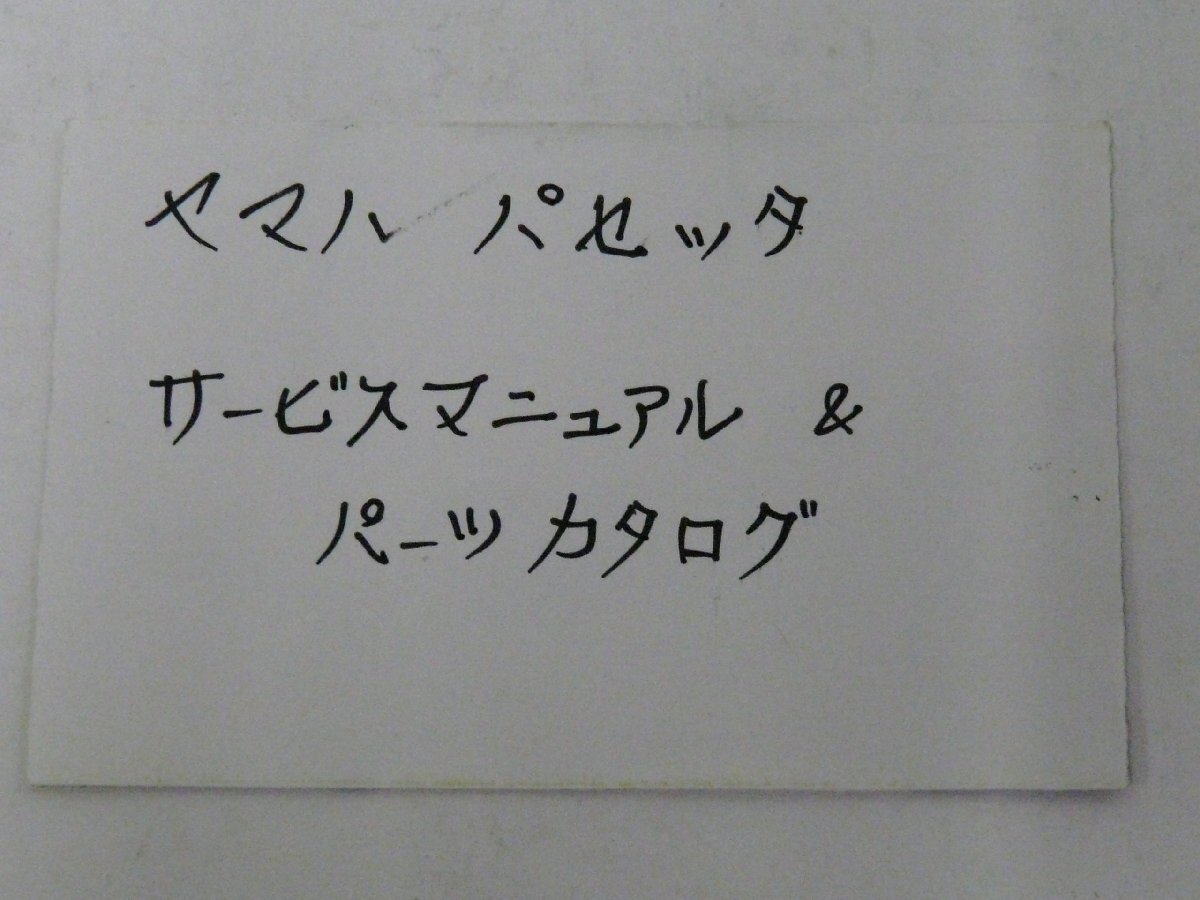 ヤマハ パセッタ
サービスマニュアル &
パーツカタログ